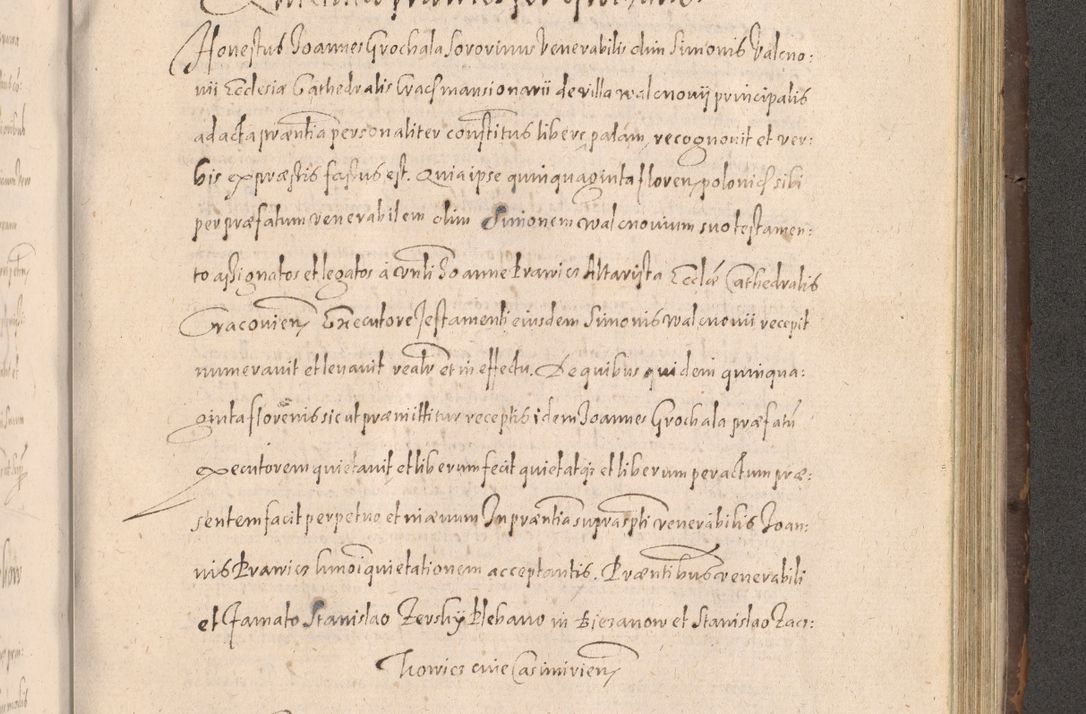 Honestus Joannes Grochala sororinus Venerabilis olim Simonis Valcno:
vii Ecclesiæ Cathedralis Crac̃ mansionarii de villa walcnovij principalis
ad acta præntia personaliter constitutus libere palam, recognovit et ver:
bis expræssis fassus est. Quia ipse quinquaginta floren polonicł sibi
per præfatum venerabilem olim Simonem walcnovium suo testamen:
to assignatos et legatos à Vnłi Joanne Krawiez Altarista Ecclæ Cathedralis
Cracovien Executore Testamenti eiusdem Simonis walcnovii recepit
numeravit et levavit realr et in effectu. De quibus quidem quinqua:
ginta florenis sic ut præmittitur receptis idem Joannes Grochala præfatũ
executorem quietavit et liberum fecit quietatqz et liberum per actum præ:
sentem facit perpetuo et in ævum In præntia supraspti venerabilis Joan:
nis Krawiez hmoi quietationem acceptantis. Præntibus venerabili
et Famato Stanislao Zerskÿ Plebano in Biezanow et Stanislao Zacz:
kowicz cive Casimirien